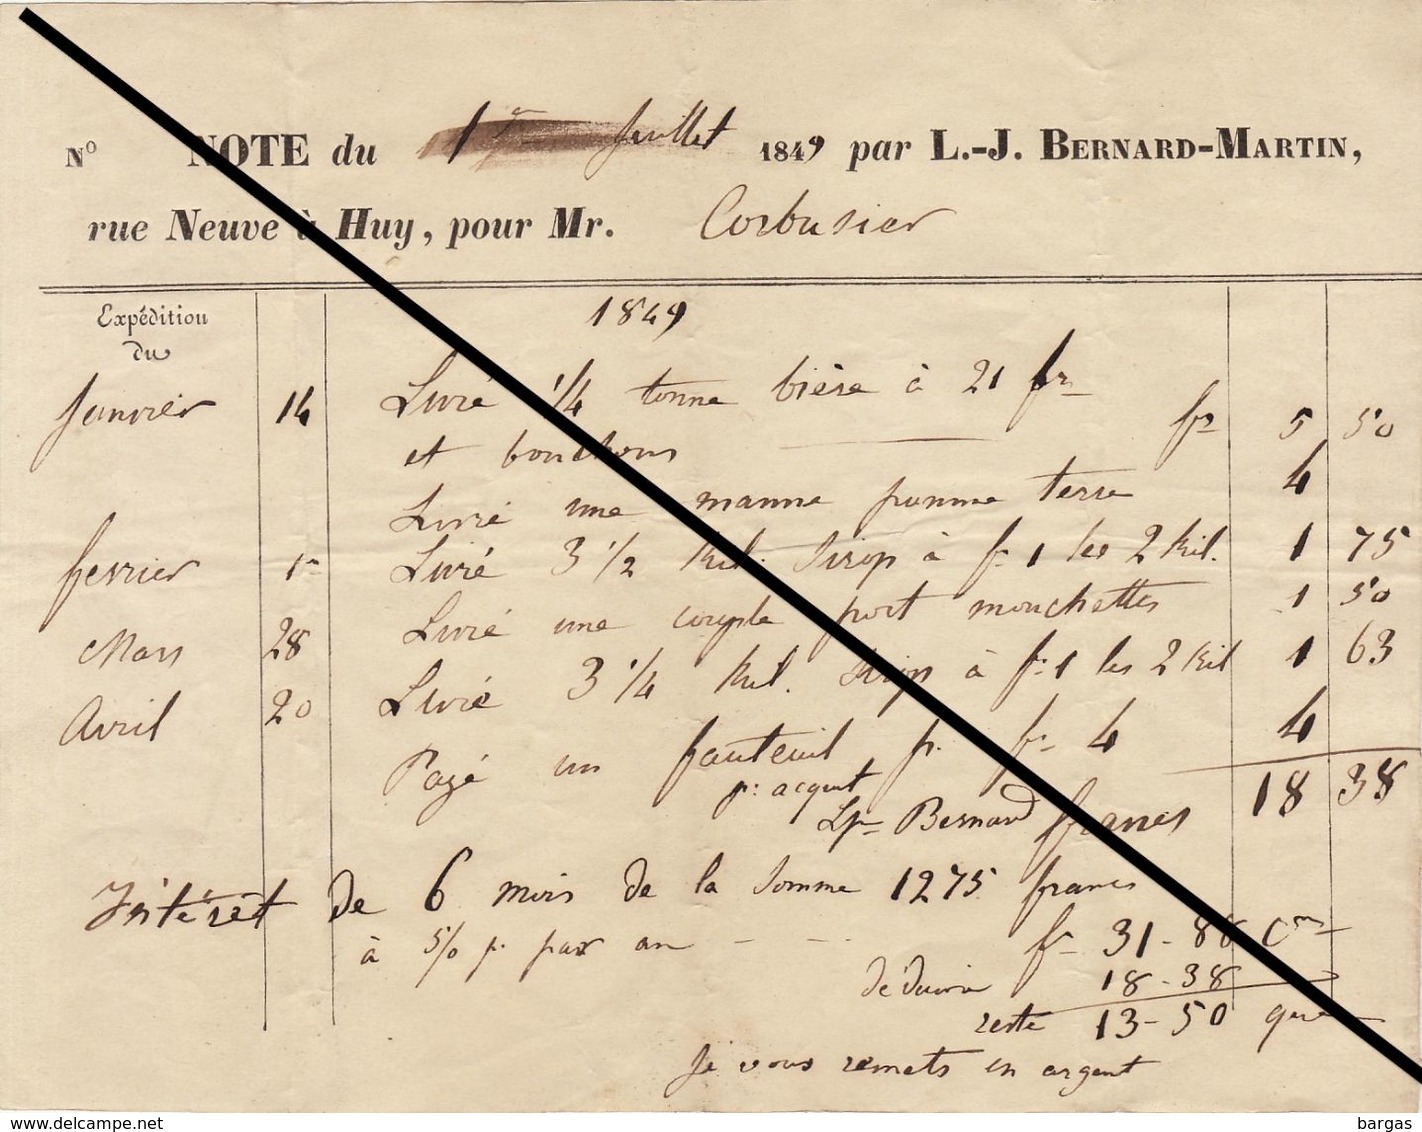 N° NOTE du 1er Juillet 1849 par L.-J. BERNARD-MARTIN,
rue Neuve à Huy, pour Mr. Corbusier
Expédition
du
1849
Janvier 14 Livré 1/4 tonne bière à 21 fr
et bouchons fr 5 50
Livré une manne pomme terre 4
fevrier 1r Livré 3 1/2 Kil. Sirop à fr 1 les 2 Kil. 1 75
Mars 28 Livré une couple port mouchettes 1 50
Avril 20 Livré 3 1/4 Kil. Sirop à fr: 1 les 2 Kil 1 63
Payé un fauteuil p. fr 4 4
18 38
p: acquit
Bernard francs
Intérêt de 6 mois de la somme 1275 francs
à 5/0 p. par an - - fr 31-88 Cmes
déduire 18-38
reste 13-50 que
Je vous remets en argent
bargas